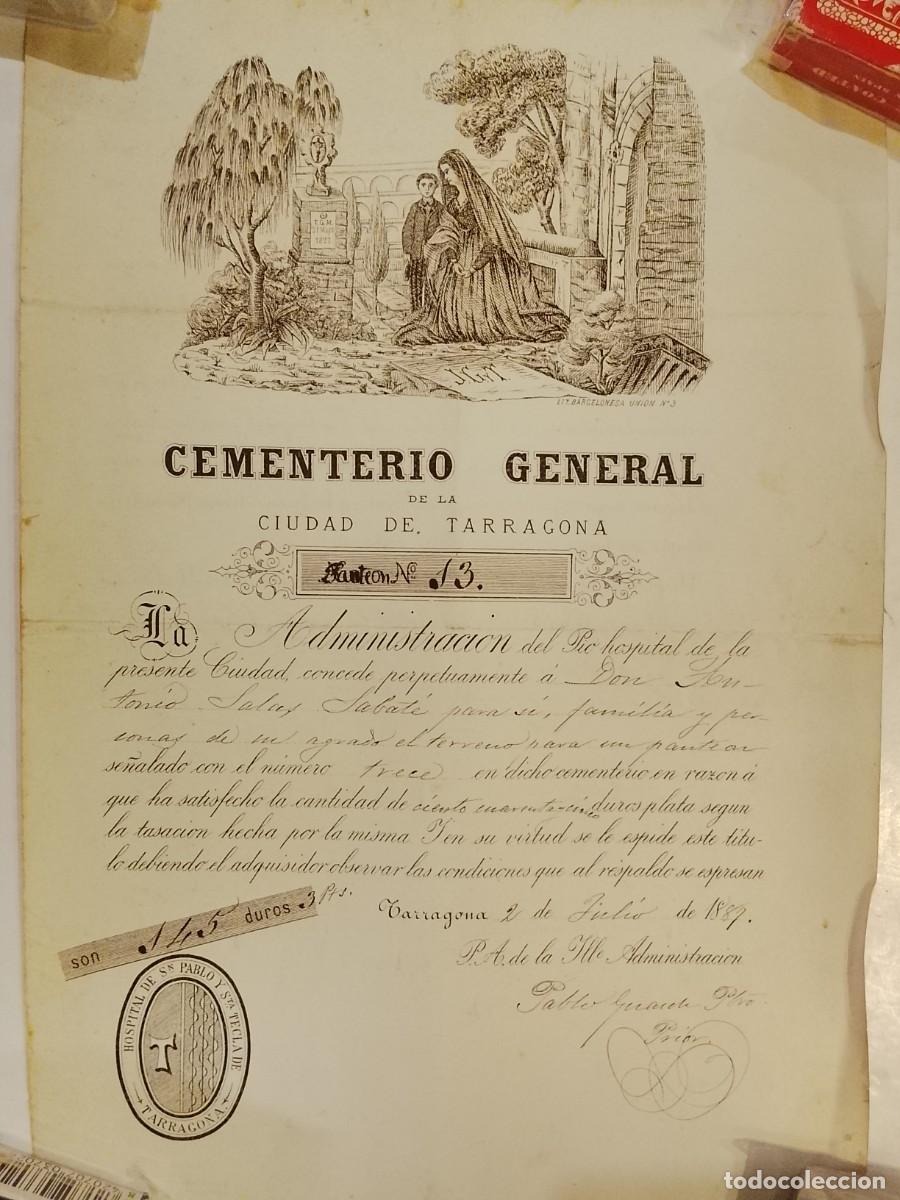 COATED
SPAIN
T.G.M.
1821
J.G.M.
LIT. BARCELONESA UNION Nº 3
CEMENTERIO GENERAL
DE LA
CIUDAD DE TARRAGONA
Panteon Nº 13.
La Administracion del Pio hospital de la
presente Ciudad, concede perpetuamente á Don An-
tonio Salas Sabaté para si, familia y per-
sonas de su agrado el terreno para un panteon
señalado con el número trece en dicho cementerio en razon á
que ha satisfecho la cantidad de ciento cuarenta cinco duros plata segun
la tasacion hecha por la misma Y en su virtud se le espide este titu-
lo debiendo el adquisidor observar las condiciones que al respaldo se espresan
son 145 duros 3 Pts.
Tarragona 2 de Julio de 1889.
P.A. de la Ille Administracion
Pablo Pbro.
Prior
HOSPITAL DE Sn PABLO Y Sta TECLA DE
TARRAGONA.
T
todocoleccion